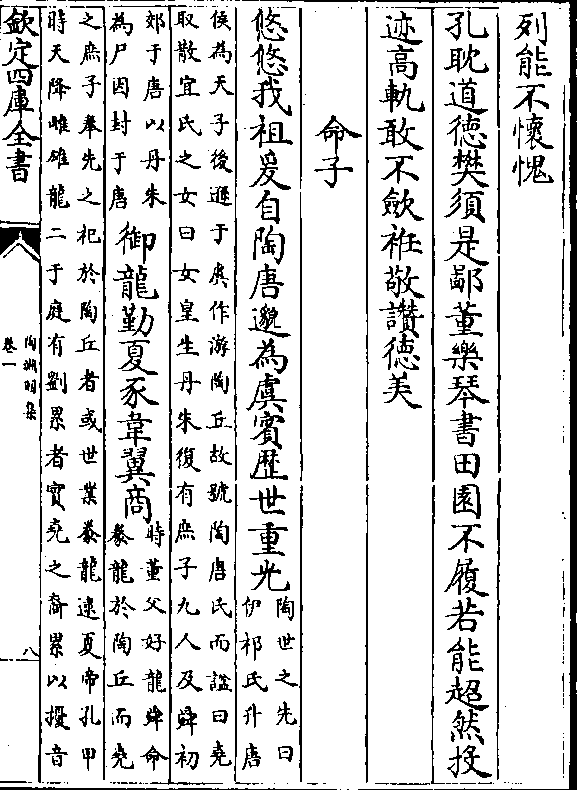 列能不懷愧
孔耽道德樊須是鄙董樂琴書田園不履若能超然投
迹高軌敢不歛袵敬讃德美
命子
悠悠我祖爰自陶唐邈為虞賓歴世重光陶世之先曰
伊祁氏升唐
侯為天子後遜于虞作游陶丘故號陶唐氏而諡曰堯
取散宜氏之女曰女皇生丹朱復有庶子九人及舜初
郊于唐以丹朱
為尸因封于唐御龍勤夏豕韋翼商時董父好龍舜命
豢龍於陶丘而堯
之庶子奉先之祀於陶丘者或世業豢龍逮夏帝孔甲
時天降雌雄龍二于庭有劉累者實堯之裔累以擾音
欽定四庫全書
陶淵明集
卷一
八